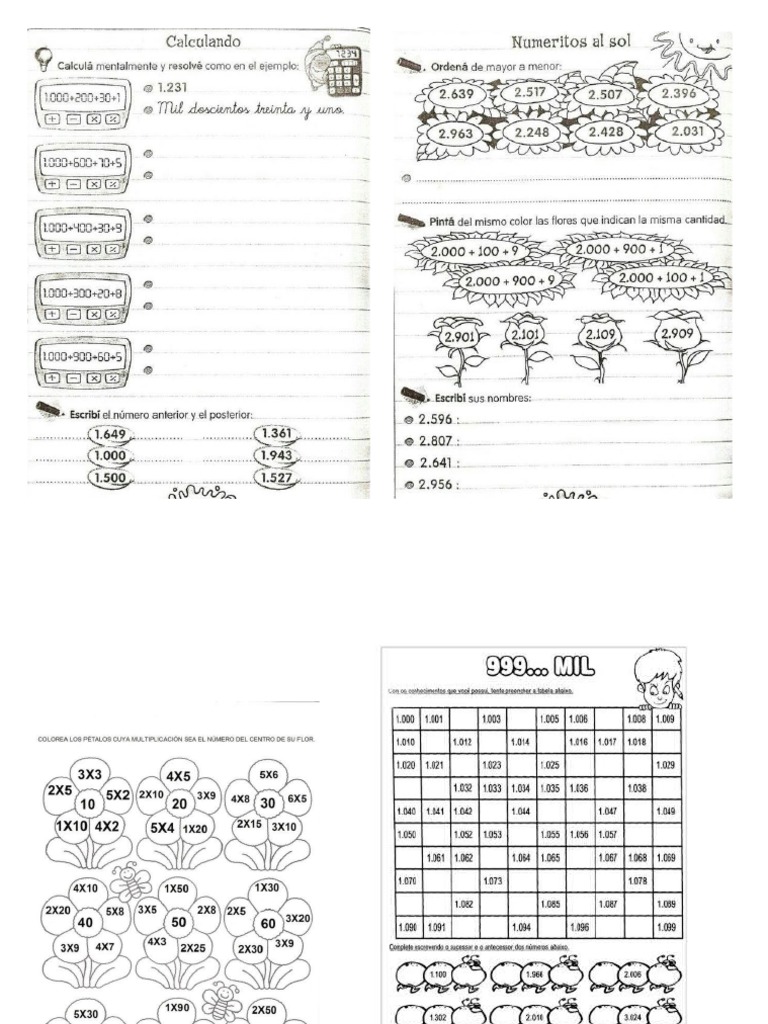 Calculando
Calculá mentalmente y resolvé como en el ejemplo:
1.000+200+30+1
1.231
Mil doscientos treinta y uno.
+ − × ÷
1.000+600+70+5
+ − × ÷
1.000+400+30+9
+ − × ÷
1.000+300+20+8
+ − × ÷
1.000+900+60+5
+ − × ÷
Escribí el número anterior y el posterior:
1.649 1.361
1.000 1.943
1.500 1.527
Numeritos al sol
Ordená de mayor a menor:
2.639 2.517 2.507 2.396
2.963 2.248 2.428 2.031
Pintá del mismo color las flores que indican la misma cantidad.
2.000 + 100 + 9 2.000 + 900 + 1
2.000 + 900 + 9 2.000 + 100 + 1
2.901 2.101 2.109 2.909
Escribí sus nombres:
2.596 :
2.807 :
2.641 :
2.956 :
COLOREA LOS PÉTALOS CUYA MULTIPLICACIÓN SEA EL NÚMERO DEL CENTRO DE SU FLOR.
3X3 4X5 5X6
2X5 5X2 2X10 3X9 4X8 6X5
10 20 30
1X10 4X2 5X4 1X20 2X15 3X10
4X10 1X50 1X30
2X20 5X8 3X5 2X8 2X5 3X20
40 50 60
3X9 4X7 4X3 2X25 2X30 3X9
5X30 1X90 2X50
999... MIL
Com os conhecimentos que você possui, tente preencher a tabela abaixo.
1.000 1.001 1.003 1.005 1.006 1.008 1.009
1.010 1.012 1.014 1.016 1.017 1.018
1.020 1.021 1.023 1.025 1.029
1.032 1.033 1.034 1.035 1.036 1.038
1.040 1.041 1.042 1.044 1.047 1.049
1.050 1.052 1.053 1.055 1.056 1.057
1.061 1.062 1.064 1.065 1.067 1.068 1.069
1.070 1.073 1.078
1.082 1.085 1.087 1.089
1.090 1.091 1.094 1.096 1.099
Complete escrevendo o sucessor e o antecessor dos números abaixo.
1.100 2.006
1.302 2.016 3.024